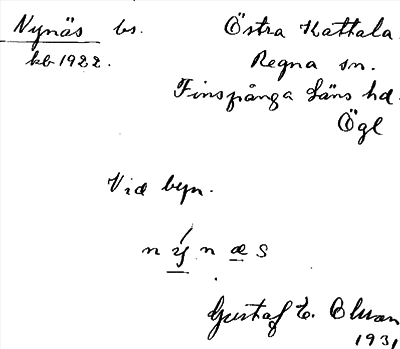 Nynäs bs. Östra Kattala.
kb 1922. Regna sn.
Finspånga läns hd.
Ögl
Vid byn.
nýnæs
Gustaf E. Olsson
1931